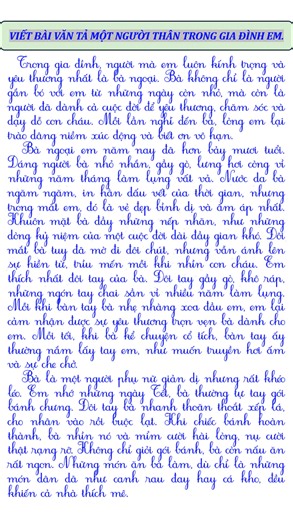 VIẾT BÀI VĂN TẢ MỘT NGƯỜI THÂN TRONG GIA ĐÌNH EM.
Trong gia đình, người mà em luôn kính trọng và
yêu thương nhất là bà ngoại. Bà không chỉ là người
gắn bó với em từ những ngày còn nhỏ, mà còn là
người đã dành cả cuộc đời để yêu thương, chăm sóc và
dạy dỗ con cháu. Mỗi lần nghĩ đến bà, lòng em lại
trào dâng niềm xúc động và biết ơn vô hạn.
Bà ngoại em năm nay đã hơn bảy mươi tuổi.
Dáng người bà nhỏ nhắn, gầy gò, lưng hơi còng vì
những năm tháng làm lụng vất vả. Nước da bà
ngăm ngăm, in hằn dấu vết của thời gian, nhưng
trong mắt em, đó là vẻ đẹp bình dị và ấm áp nhất.
Khuôn mặt bà đầy những nếp nhăn, như những
dòng kỷ niệm của một cuộc đời dài đầy gian khó. Đôi
mắt bà tuy đã mờ đi đôi chút, nhưng vẫn ánh lên
sự hiền từ, trìu mến mỗi khi nhìn con cháu. Em
thích nhất đôi tay của bà. Đôi tay gầy gò, khô ráp,
những ngón tay chai sần vì nhiều năm làm lụng.
Mỗi khi bàn tay bà nhẹ nhàng xoa đầu em, em lại
cảm nhận được sự yêu thương trọn vẹn bà dành cho
em. Mỗi tối, khi bà kể chuyện cổ tích, bàn tay ấy
thường nắm lấy tay em, như muốn truyền hơi ấm
và sự che chở.
Bà là một người phụ nữ giản dị nhưng rất khéo
léo. Em nhớ những ngày Tết, bà thường tự tay gói
bánh chưng. Đôi tay bà nhanh thoăn thoắt xếp lá,
cho nhân vào rồi buộc lạt. Khi chiếc bánh hoàn
thành, bà nhìn nó và mỉm cười hài lòng, nụ cười
thật rạng rỡ. Không chỉ giỏi gói bánh, bà còn nấu ăn
rất ngon. Những món ăn bà làm, dù chỉ là những
món dân dã như canh rau đay hay cá kho, đều
khiến cả nhà thích mê.